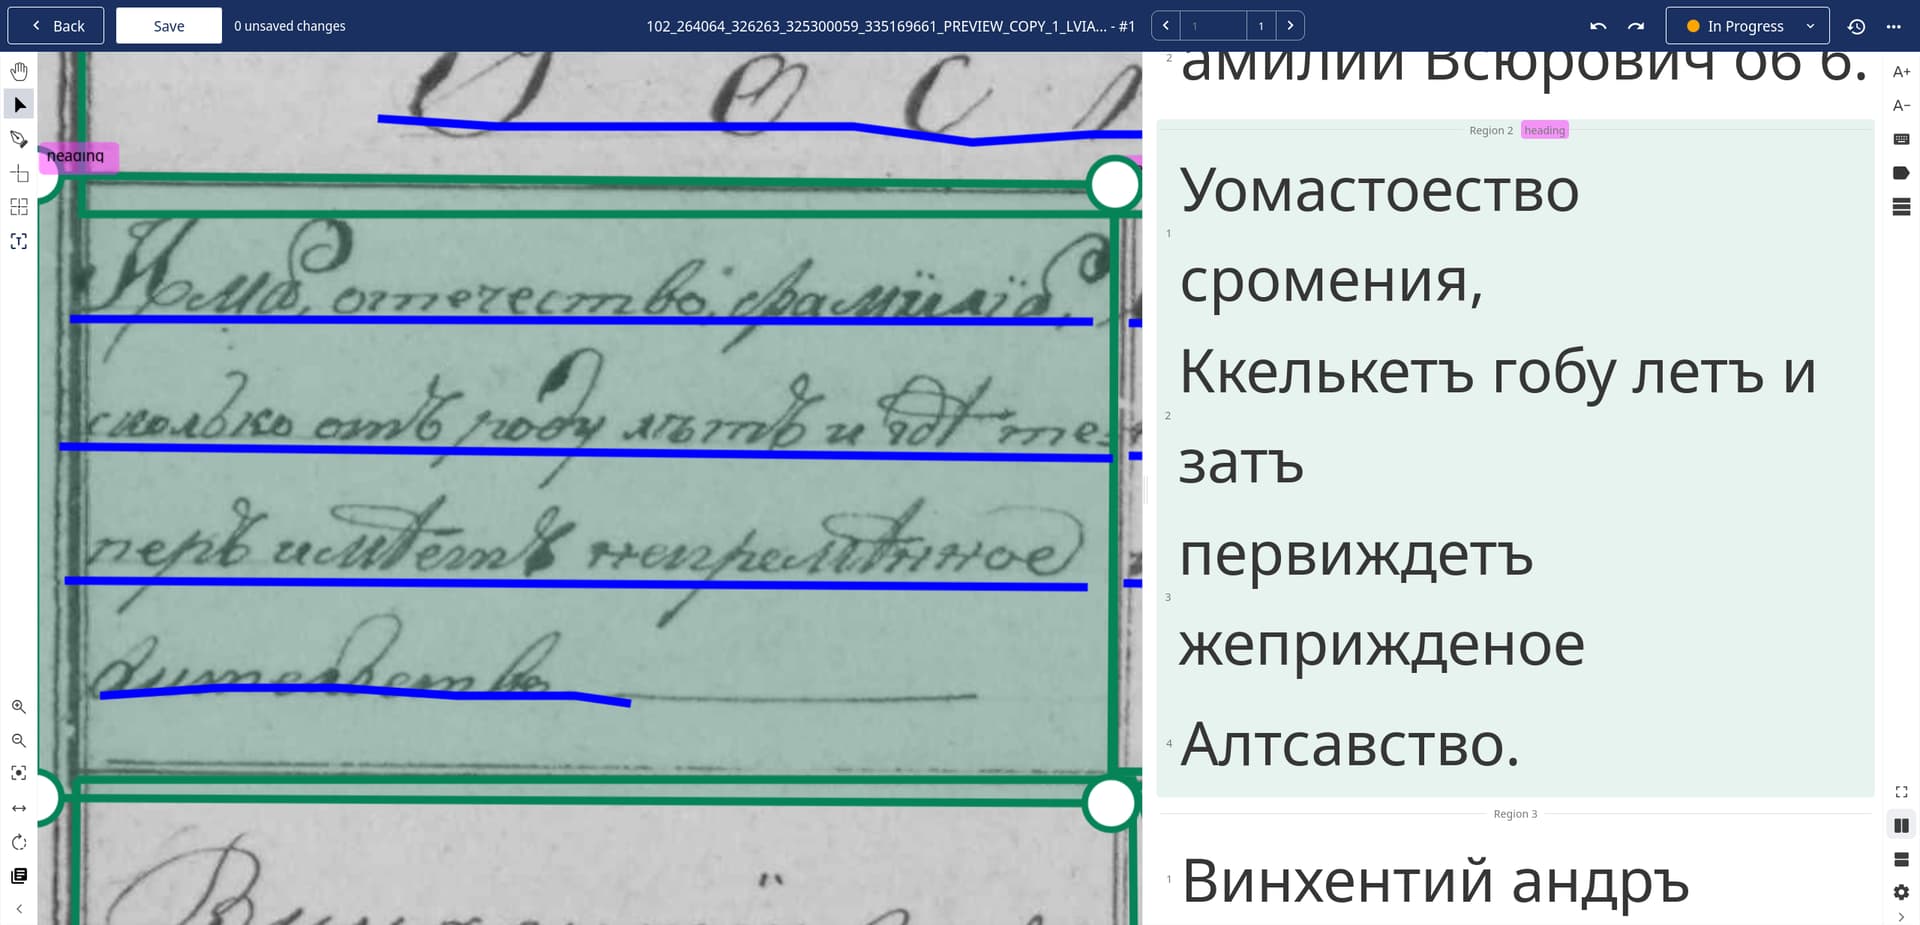 Back
Save
0 unsaved changes
102_264064_326263_325300059_335169661_PREVIEW_COPY_1_LVIA... - #1
1
1
In Progress
heading
Имя, отечество, фамилія,
сколько отъ роду лѣтъ и гдѣ те-
перь имѣетъ непремѣнное
жительство
2
амилии Всюрович об б.
Region 2 heading
1
Уомастоество
сромения,
2
Ккелькетъ гобу летъ и
затъ
3
первиждетъ
жеприжденое
4
Алтсавство.
Region 3
1
Винхентий андръ
A+
A−